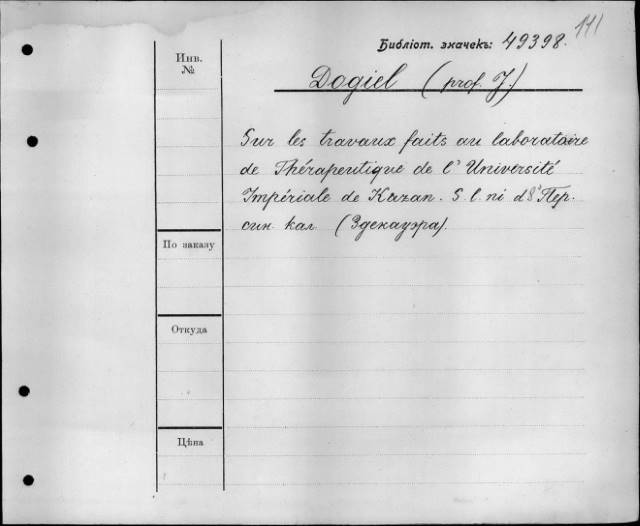 141
Библіот. значекъ: 49398.
Инв.
№
Dogiel (prof. J.)
Sur les travaux faits au laboratoire
de Thérapeutique de l'Université
Impériale de Kazan. S. l. ni d 8° Пер.
син. кал. (Эденауэра).
По заказу
Откуда
Цѣна